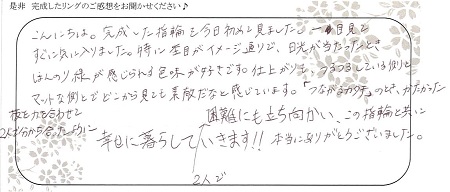 是非 完成したリングのご感想をお聞かせください♪
こんにちは。完成した指輪を今日初めて見ました。一目見て
すぐに気に入りました。特に杢目がイメージ通りで、日光が当たったとき、
ほんのり緑が感じられる色味が好きです。仕上がりも、つるつるしている側と
マットな側とでどこから見ても素敵だなと感じています。「つながるカタチ」のとき、かたかった
板を力を合わせて
2人で分かち合ったように
困難にも立ち向かい、この指輪と共に
幸せに暮らしていきます!! 本当にありがとうございました。
2人で